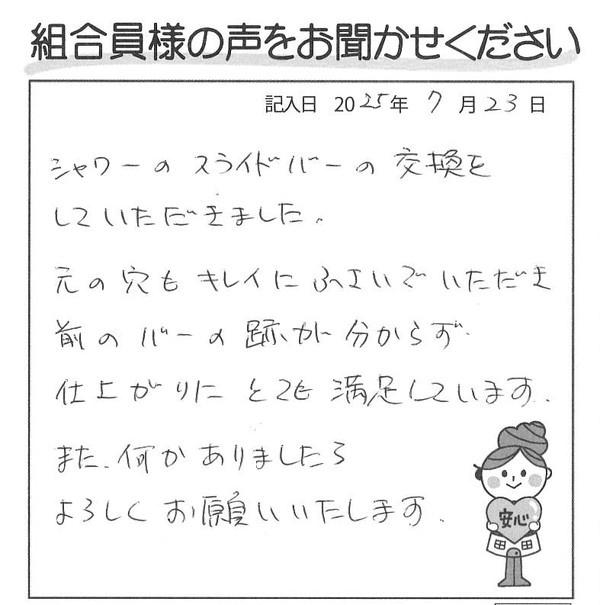 組合員様の声をお聞かせください
記入日 2025年 7月23日
シャワーの スライドバーの 交換を
していただきました。
元の穴も キレイに ふさいで いただき
前の バーの 跡が 分からず
仕上がりに とても 満足しています。
また、何か ありましたら
よろしく お願いいたします。
安心